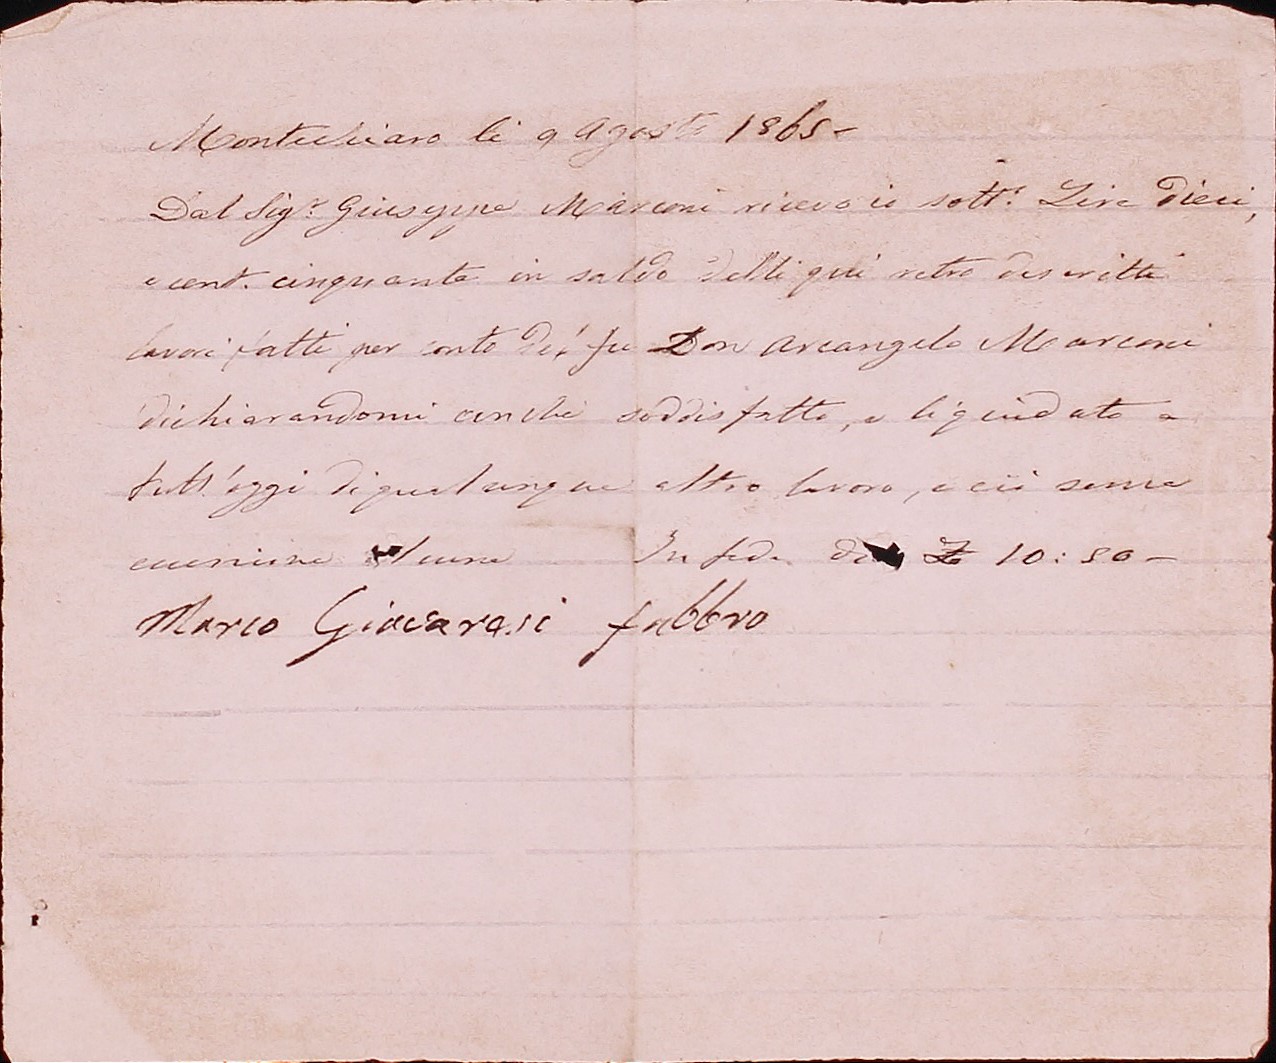 Montechiaro li 9 Agosto 1865-
Dal Sigr. Giuseppe Marconi ricevo io sotto. Lire Dieci,
e cent. cinquanta in saldo delli qui retro descritti
lavori fatti per conto del fu Don Arcangelo Marconi
dichiarandomi anche soddisfatto, e liquidato a
tutt'oggi di qualunque altro lavoro, e ciò senza
eccezione alcuna In fede 10:50-
Marco Giacaresi fabbro